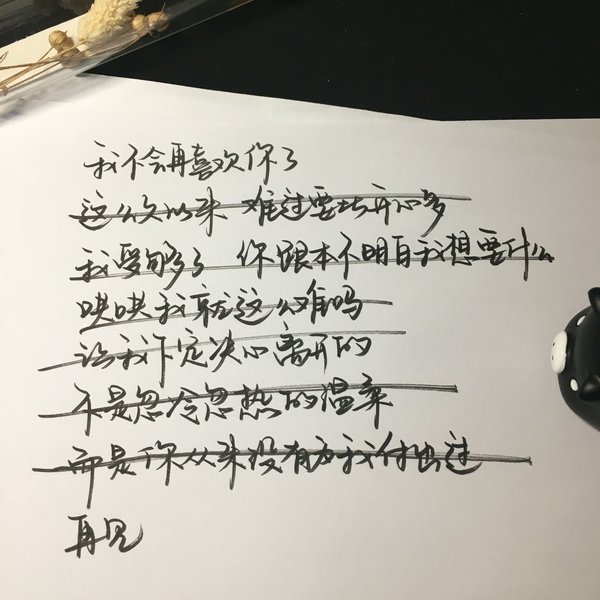 我不会再喜欢你了
这么久以来 难过要比开心多
我受够了 你跟本不明白我想要什么
哄哄我就这么难吗
让我下定决心离开的
不是忽冷忽热的温柔
而是你从来没有为我付出过
再见